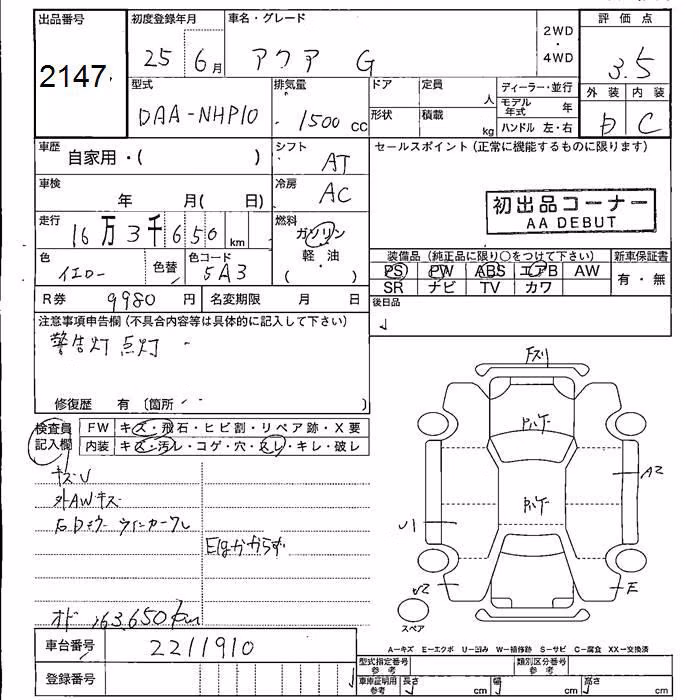 出品番号 初度登録年月 車名・グレード 2WD ・ 4WD 評価点
2147 25 6月 アクア G 3.5
型式 排気量 ドア 定員 人 ディーラー・並行 外装 内装
DAA-NHP10 1500 cc 形状 積載 kg モデル年式 年 D C
ハンドル 左・右
車歴 自家用・( ) シフト AT セールスポイント (正常に機能するものに限ります)
車検 年 月( 日) 冷房 AC
初出品コーナー
AA DEBUT
走行 16万3千650 km 燃料 ガソリン
軽・油
( )
色 イエロー 色替 色コード 5A3
装備品 (純正品に限り○をつけて下さい) 新車保証書
PS PW ABS エアB AW 有・無
SR ナビ TV カワ
R券 9980円 名変期限 月 日 後日品
注意事項申告欄 (不具合内容等は具体的に記入して下さい)
警告灯 点灯
修復歴 有 〔箇所 〕
検査員記入欄 FW キズ・飛石・ヒビ割・リペア跡・X要
内装 キズ・汚レ・コゲ・穴・スレ・キレ・破レ
キズU
外AWキズ
ウインカーワレ
Egかからず
オド 163,650km
Fスリ
A2
U1
U2
E
スペア
A—キズ E—エクボ U—凹み W—補修跡 S—サビ C—腐食 XX—交換済
車台番号 2211910
登録番号
型式指定番号 参考 類別区分番号 参考
車庫証明用 参考 長さ cm 幅 cm 高さ cm